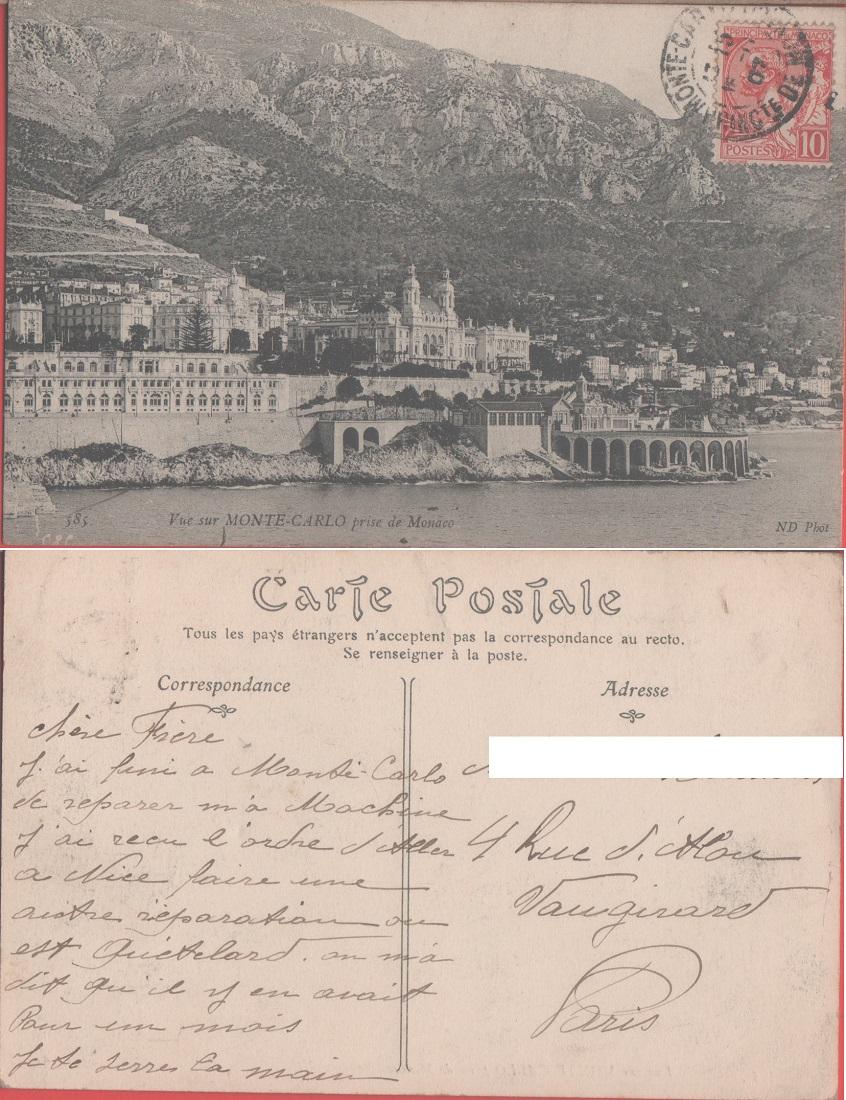 MONTE-CARLO
PRINCTE DE
07
PRINCIPAUTÉ DE MONACO
POSTES 10
585. Vue sur MONTE-CARLO prise de Monaco
ND Phot
Carte Postale
Tous les pays étrangers n'acceptent pas la correspondance au recto.
Se renseigner à la poste.
Correspondance
chère Frère
J'ai fini a Monté-Carlo
de reparer m'a Machine
J'ai recu l'ordre d'Aller
a Nice faire une
autre réparation ou
est Quételard. on m'a
dit qu'il y en avait
Pour un mois
Je te serres la main
Adresse
4 Rue d'Alou
Vaugirard
Paris